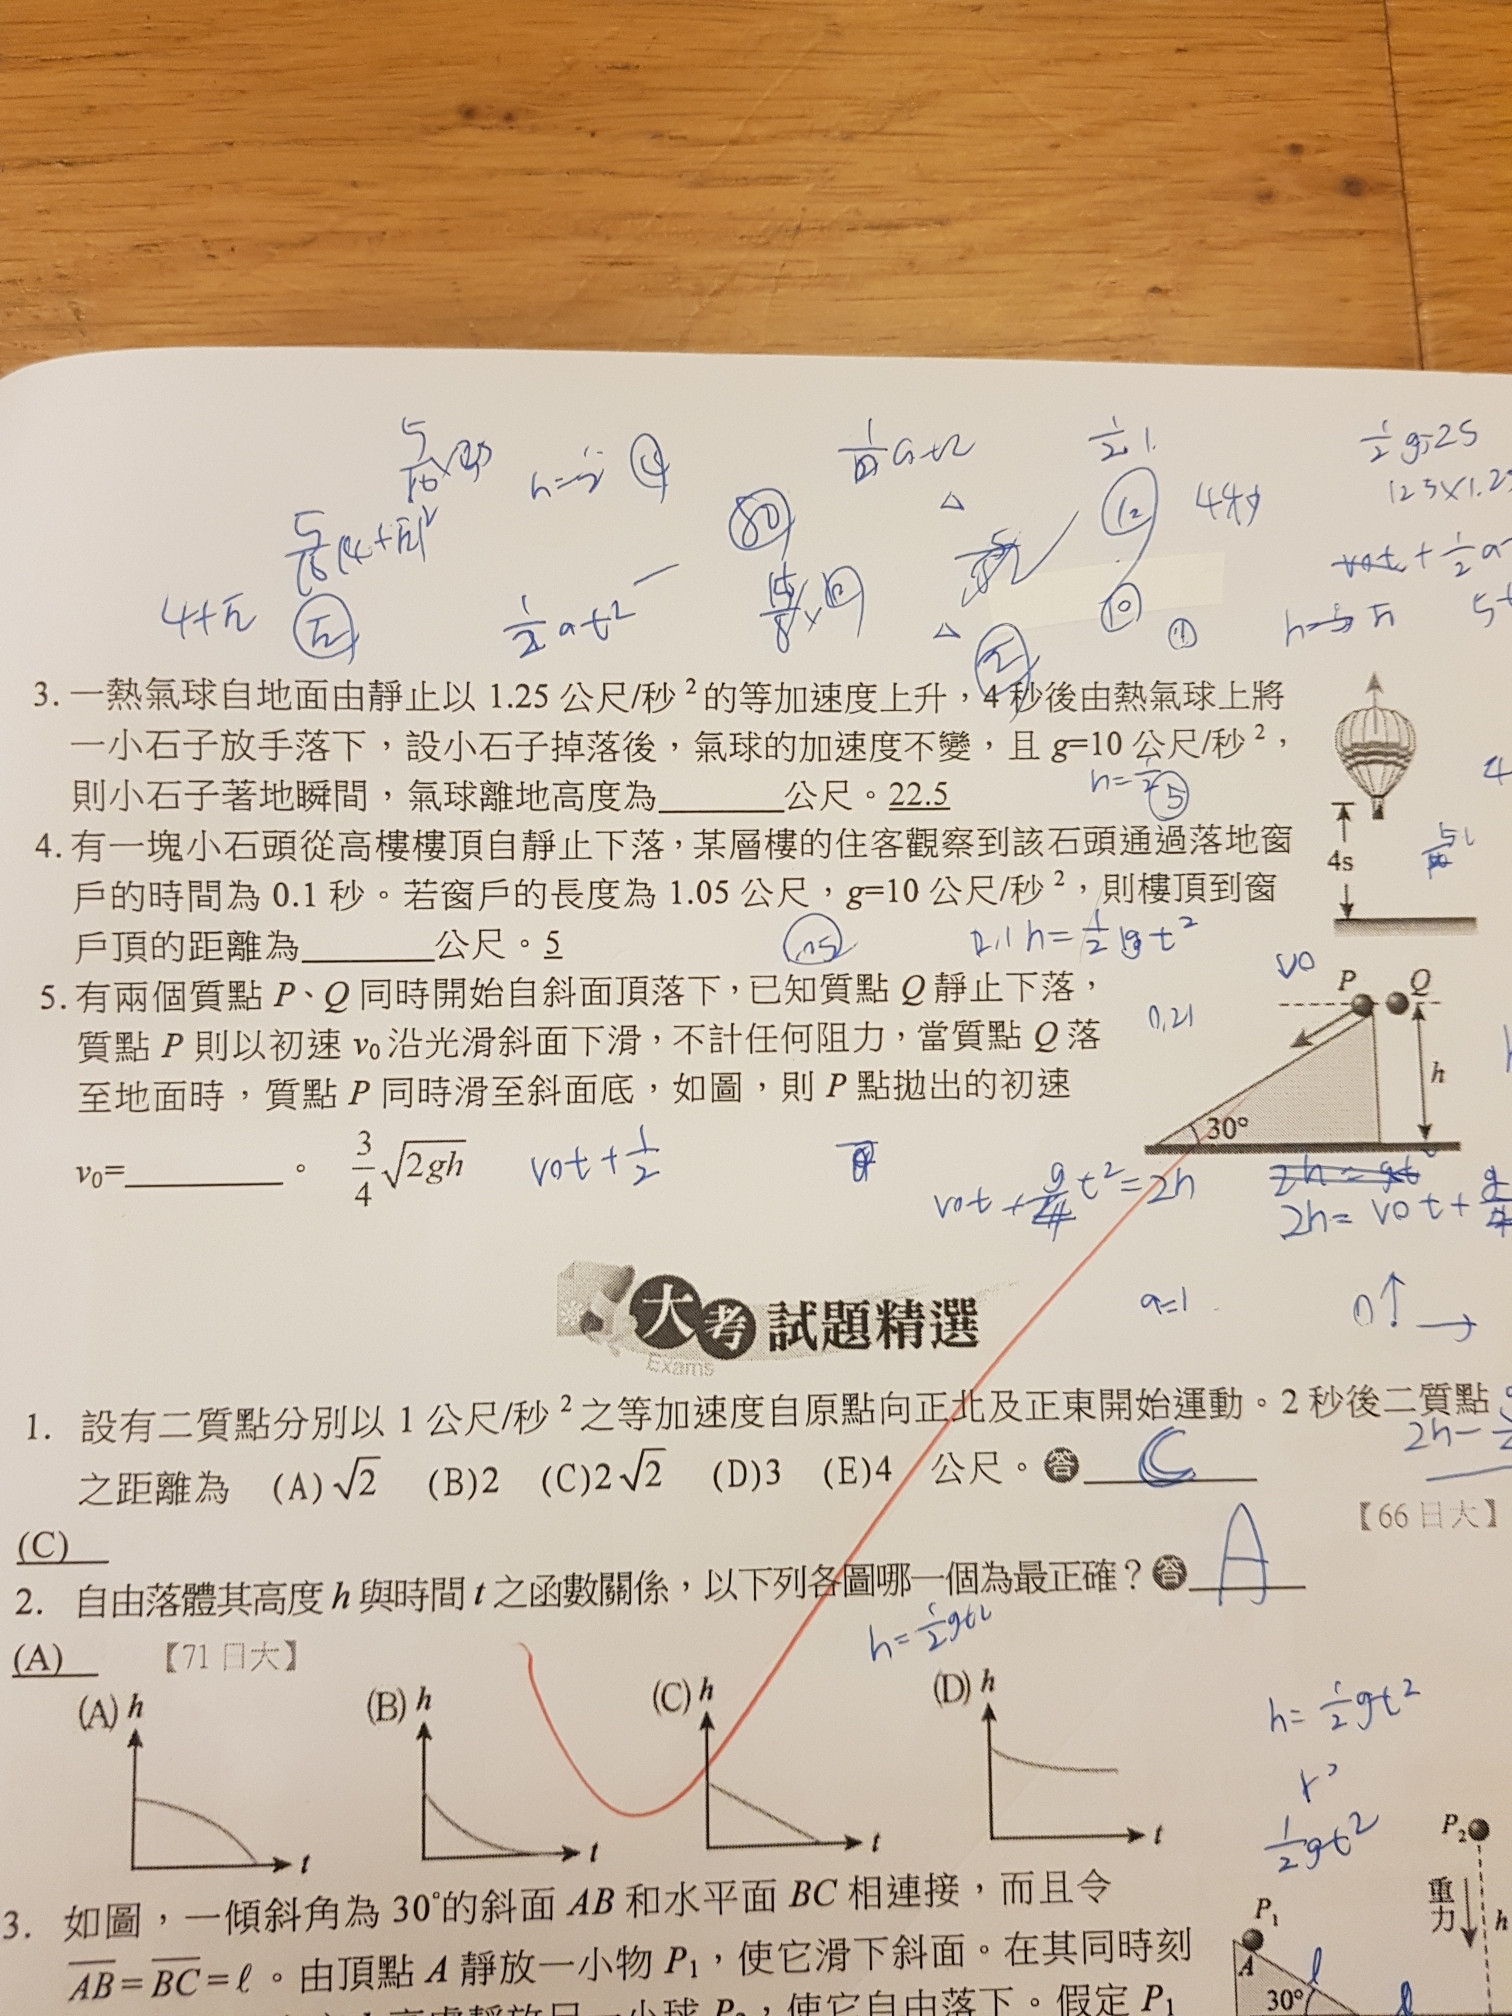 1/2 at²
1/2 g=25
4秒
80
12
10
1/2 at²
3. 一熱氣球自地面由靜止以 1.25 公尺/秒²的等加速度上升，4 秒後由熱氣球上將
一小石子放手落下，設小石子掉落後，氣球的加速度不變，且 g=10 公尺/秒²，
則小石子著地瞬間，氣球離地高度為______公尺。22.5
4s
4. 有一塊小石頭從高樓樓頂自靜止下落，某層樓的住客觀察到該石頭通過落地窗
戶的時間為 0.1 秒。若窗戶的長度為 1.05 公尺，g=10 公尺/秒²，則樓頂到窗
戶頂的距離為______公尺。5
5. 有兩個質點 P、Q 同時開始自斜面頂落下，已知質點 Q 靜止下落，
質點 P 則以初速 v₀ 沿光滑斜面下滑，不計任何阻力，當質點 Q 落
至地面時，質點 P 同時滑至斜面底，如圖，則 P 點拋出的初速
v₀=________。 3/4 √2gh
v0 P Q
h
30°
v0t + 1/2
v0t + g/4 t² = 2h
2h = v0t +
a=1
大考試題精選
Exams
1. 設有二質點分別以 1 公尺/秒²之等加速度自原點向正北及正東開始運動。2 秒後二質點
之距離為 (A)√2 (B)2 (C)2√2 (D)3 (E)4 公尺。答 C
【66 日大】
(C)
2. 自由落體其高度 h 與時間 t 之函數關係，以下列各圖哪一個為最正確？答 A
h = 1/2 gt²
(A) 【71 日大】
(A) h t
(B) h t
(C) h t
(D) h t
h = 1/2 gt²
1/2 gt²
3. 如圖，一傾斜角為 30°的斜面 AB 和水平面 BC 相連接，而且令
AB = BC = ℓ。由頂點 A 靜放一小物 P₁，使它滑下斜面。在其同時刻
高處靜放另一小球 P₂，使它自由落下。假定 P₁
P₂
重力
h
P₁
A
ℓ
30°